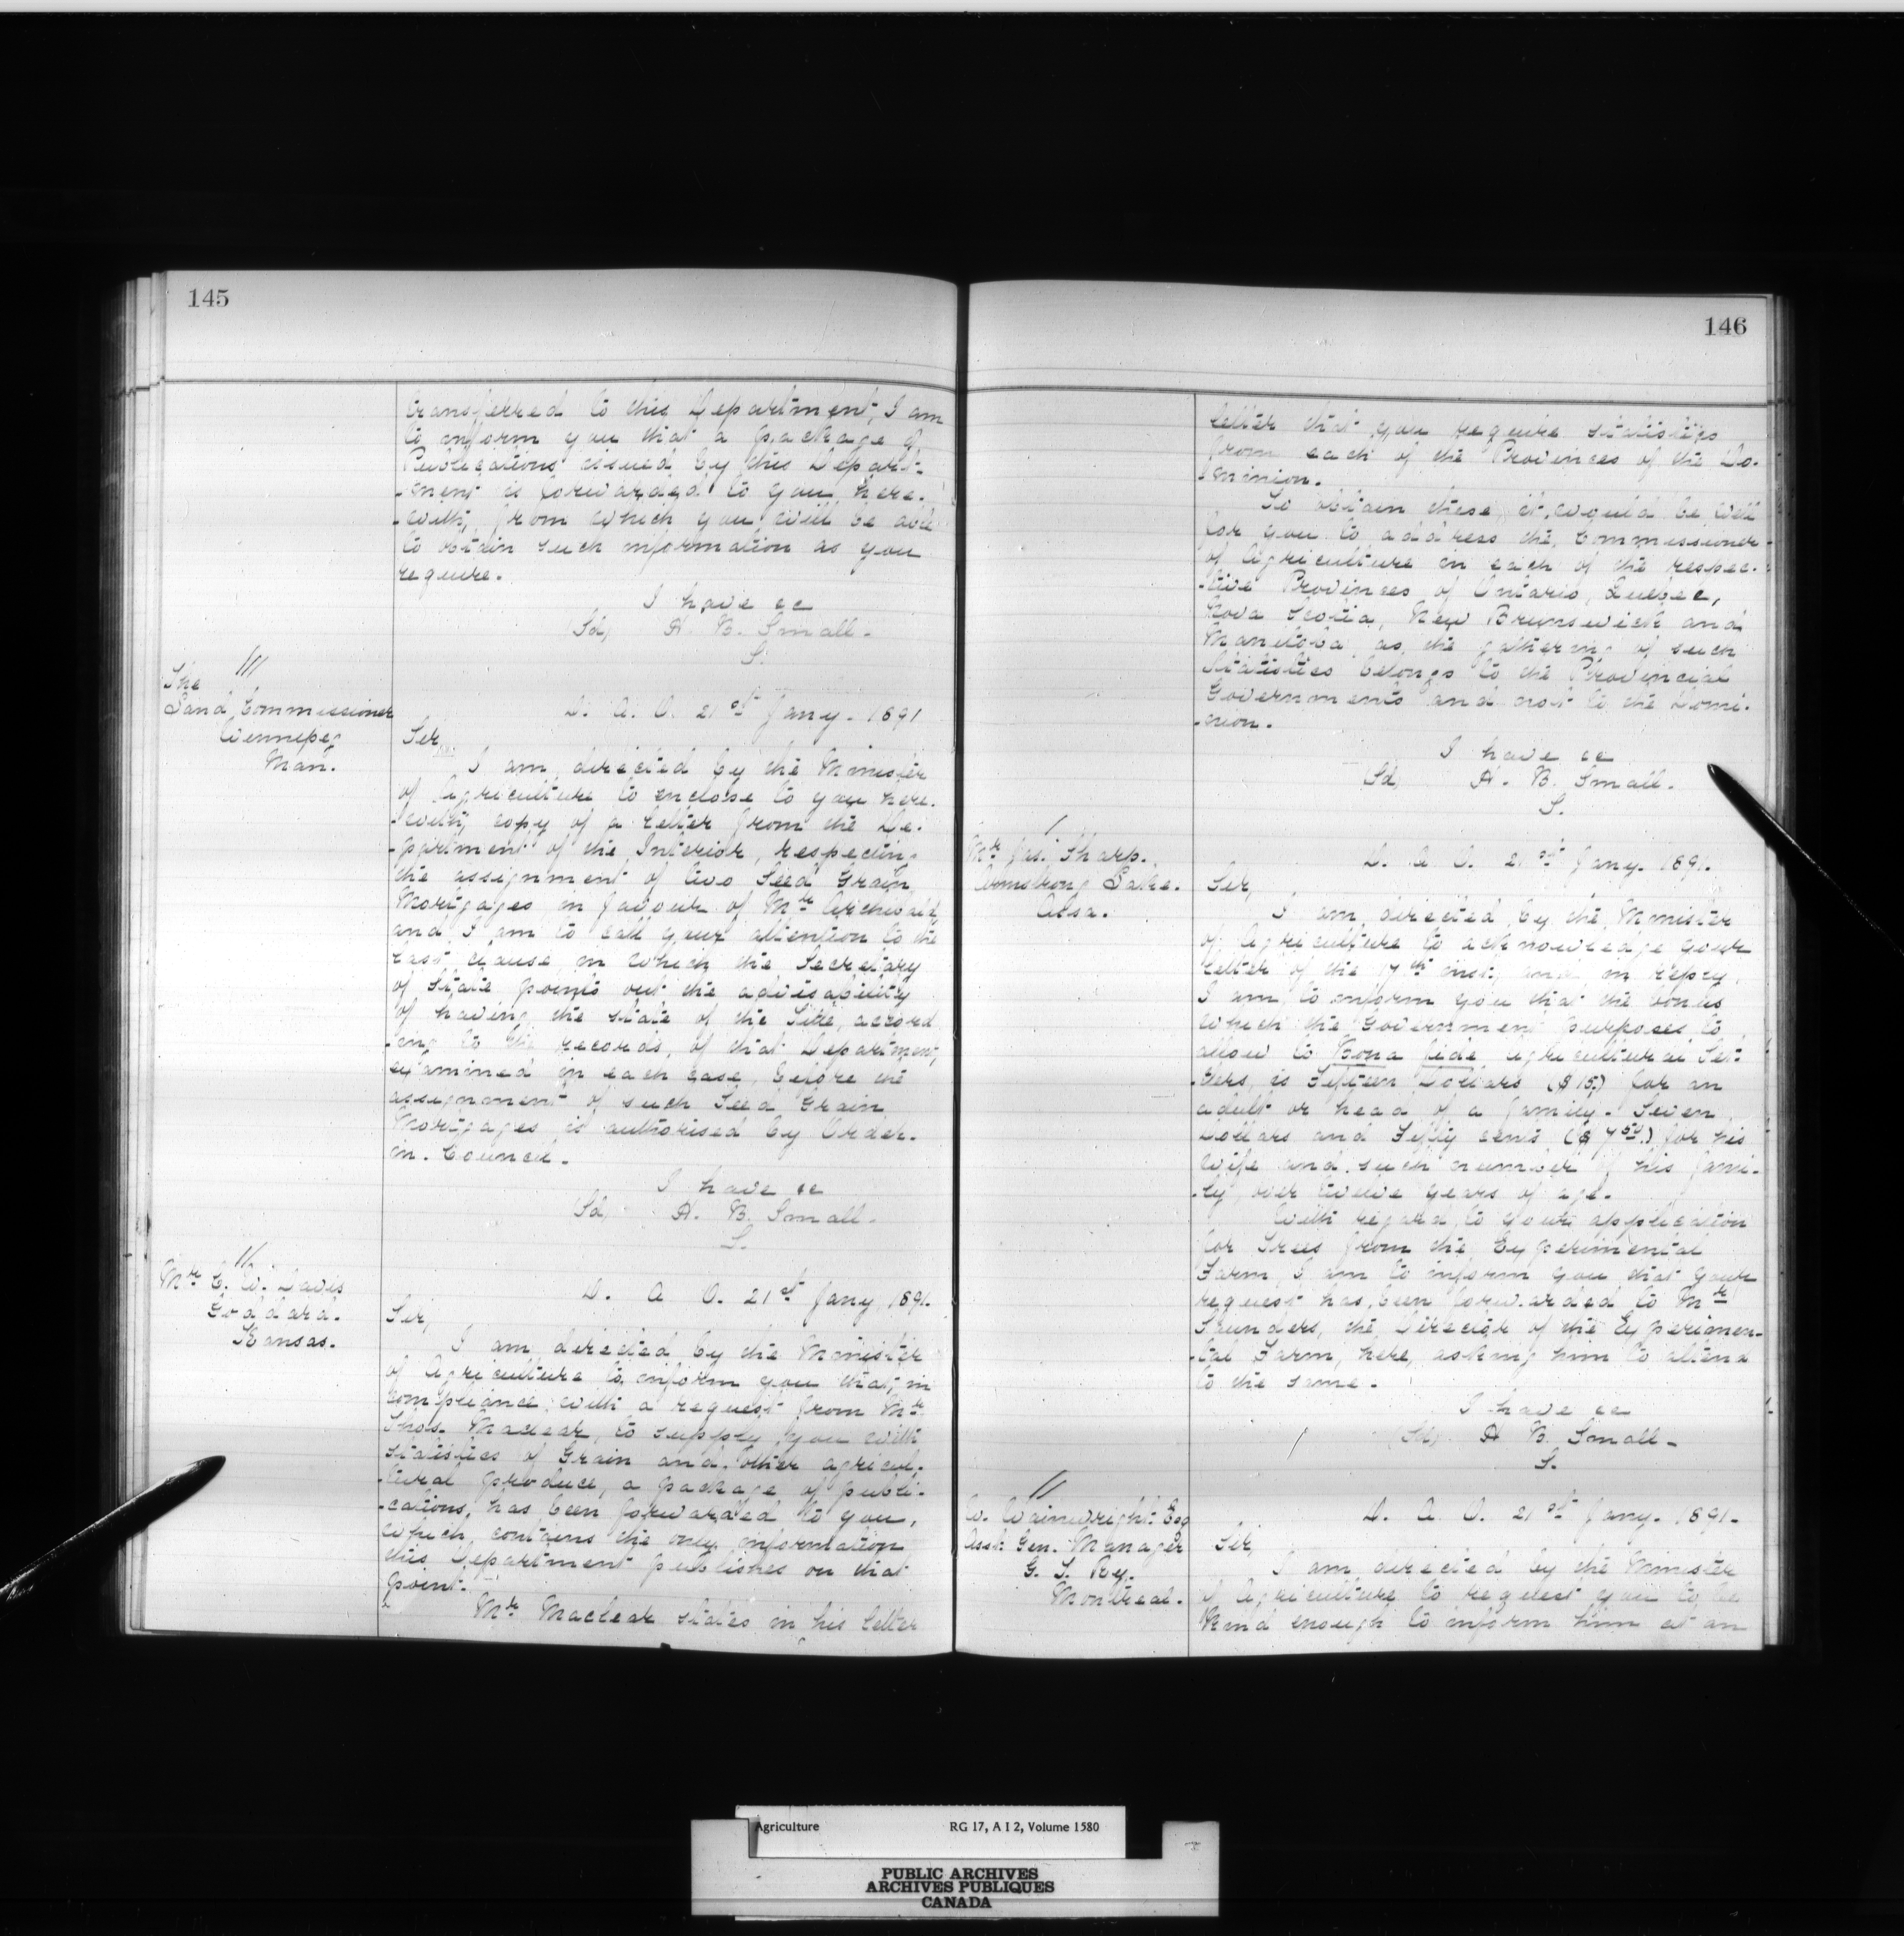 145
transferred to this Department, I am
to inform you that a package of
Publications issued by this Depart-
-ment is forwarded to you here-
-with, from which you will be able
to obtain such information as you
require.
I have &c
(Sd) H. B. Small.
S.
///
The
Land Commissioner
Winnipeg
Man.
D. A. O. 21st Jany. 1891
Sir,
I am directed by the Minister
of Agriculture to enclose to you here-
-with, copy of a letter from the De-
-partment of the Interior, respecting
the assignment of two Seed Grain
Mortgages in favour of Mr Archibald,
and I am to call your attention to the
last clause in which the Secretary
of State points out the advisability
of having the state of the Title, accord
-ing to the records, of that Department,
examined in each case, before the
assignment of such Seed Grain
Mortgages is authorised by Order-
in-Council.
I have &c
(Sd) H. B. Small.
S.
//
Mr C. W. Davis
Goddard.
Kansas.
D. A. O. 21st Jany 1891.
Sir,
I am directed by the Minister
of Agriculture to inform you that, in
compliance with a request from Mr
Thos. Maclear, to supply you with
statistics of Grain and other agricul-
-tural produce, a package of publi-
-cations, has been forwarded to you,
which contains the only information
this Department publishes on that
point.
Mr Maclear states in his letter
146
letter that you require statistics
from each of the Provinces of the Do-
-minion.
To obtain these, it would be well
for you to address the Commissioner
of Agriculture in each of the respec-
-tive Provinces of Ontario, Quebec,
Nova Scotia, New Brunswick and
Manitoba as the gathering of such
Statistics belongs to the Provincial
Governments and not to the Domi-
-nion.
I have &c
(Sd) H. B. Small.
S.
/
Mr Jas. Sharp.
Armstrong Lake.
Assa.
D. A. O. 21st Jany. 1891.
Sir,
I am directed by the Minister
of Agriculture to acknowledge your
letter of the 17th inst. and in reply,
I am to inform you that the bonus
which the Government purposes to
allow to Bona fide Agricultural Set-
-tlers, is Fifteen Dollars ($15.) for an
adult or head of a family. Seven
Dollars and Fifty cents ($7.50.) for his
wife and such number of his fami-
-ly, over twelve years of age.
With regard to your application
for Trees from the Experimental
Farm, I am to inform you that your
request has been forwarded to Mr
Saunders, the Director of the Experimen-
-tal Farm, here, asking him to attend
to the same.
I have &c
(Sd) H. B. Small.
S.
//
W. Wainwright Esq
Asst. Gen. Manager
G. T. Ry.
Montreal.
D. A. O. 21st Jany. 1891.
Sir,
I am directed by the Minister
of Agriculture to request you to be
kind enough to inform him at an
Agriculture RG 17, A I 2, Volume 1580
PUBLIC ARCHIVES
ARCHIVES PUBLIQUES
CANADA